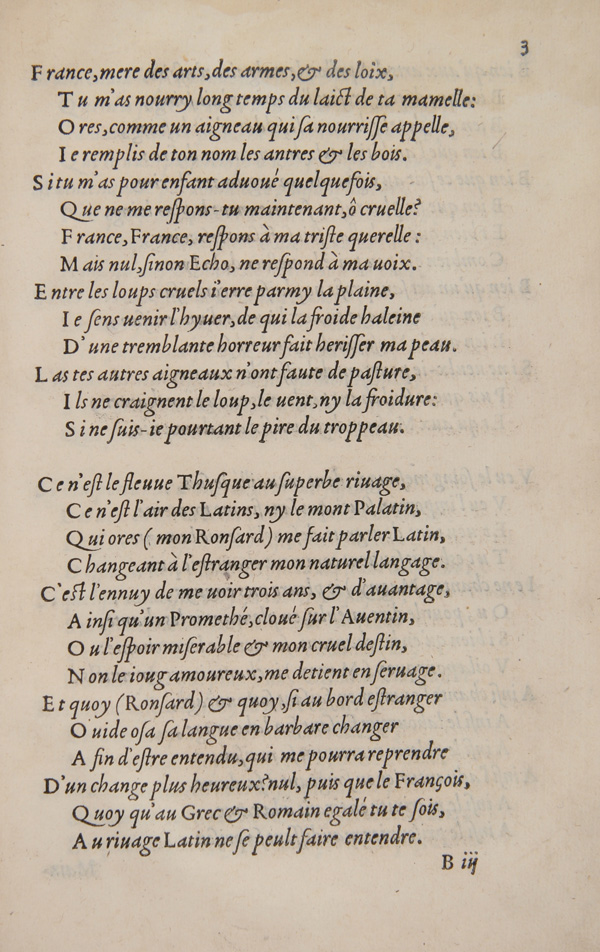 3
France, mere des arts, des armes, & des loix,
Tu m'as nourry long temps du laict de ta mamelle:
Ores, comme un aigneau qui sa nourrisse appelle,
Ie remplis de ton nom les antres & les bois.
Si tu m'as pour enfant aduoué quelquefois,
Que ne me respons-tu maintenant, ô cruelle?
France, France, respons à ma triste querelle:
Mais nul, sinon Echo, ne respond à ma uoix.
Entre les loups cruels i'erre parmy la plaine,
Ie sens uenir l'hyuer, de qui la froide haleine
D'une tremblante horreur fait herisser ma peau.
Las tes autres aigneaux n'ont faute de pasture,
Ils ne craignent le loup, le uent, ny la froidure:
Si ne suis-ie pourtant le pire du troppeau.
Ce n'est le fleuue Thusque au superbe riuage,
Ce n'est l'air des Latins, ny le mont Palatin,
Qui ores (mon Ronsard) me fait parler Latin,
Changeant à l'estranger mon naturel langage.
C'est l'ennuy de me uoir trois ans, & d'auantage,
Ainsi qu'un Promethé, cloué sur l'Auentin,
Ou l'espoir miserable & mon cruel destin,
Non le ioug amoureux, me detient en seruage.
Et quoy (Ronsard) & quoy, si au bord estranger
Ouide osa sa langue en barbare changer
Afin d'estre entendu, qui me pourra reprendre
D'un change plus heureux? nul, puis que le François,
Quoy qu'au Grec & Romain egalé tu te sois,
Au riuage Latin ne se peult faire entendre.
B iij